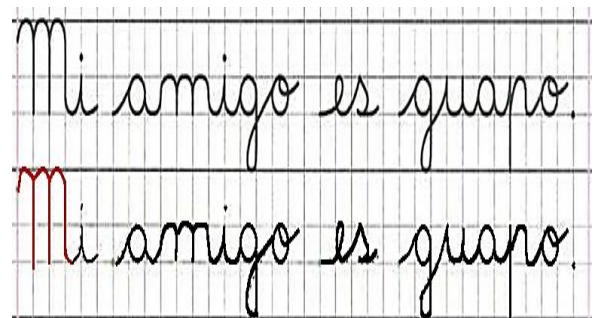 Mi amigo es guapo.
Mi amigo es guapo.